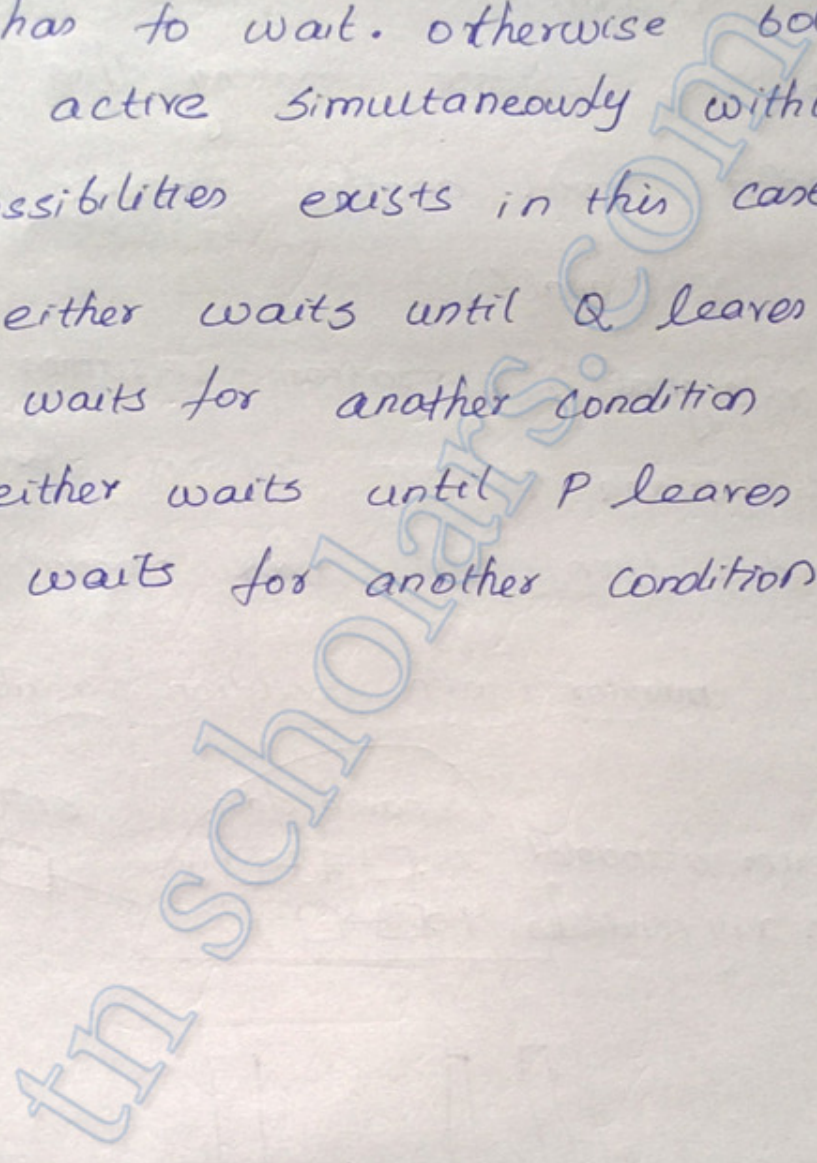 has to wait. otherwise bo
active simultaneously with
ssibilities exists in this cas
either waits until Q leaves
waits for anather condition
either waits until P leaves
waits for another condition
tn scholars.com